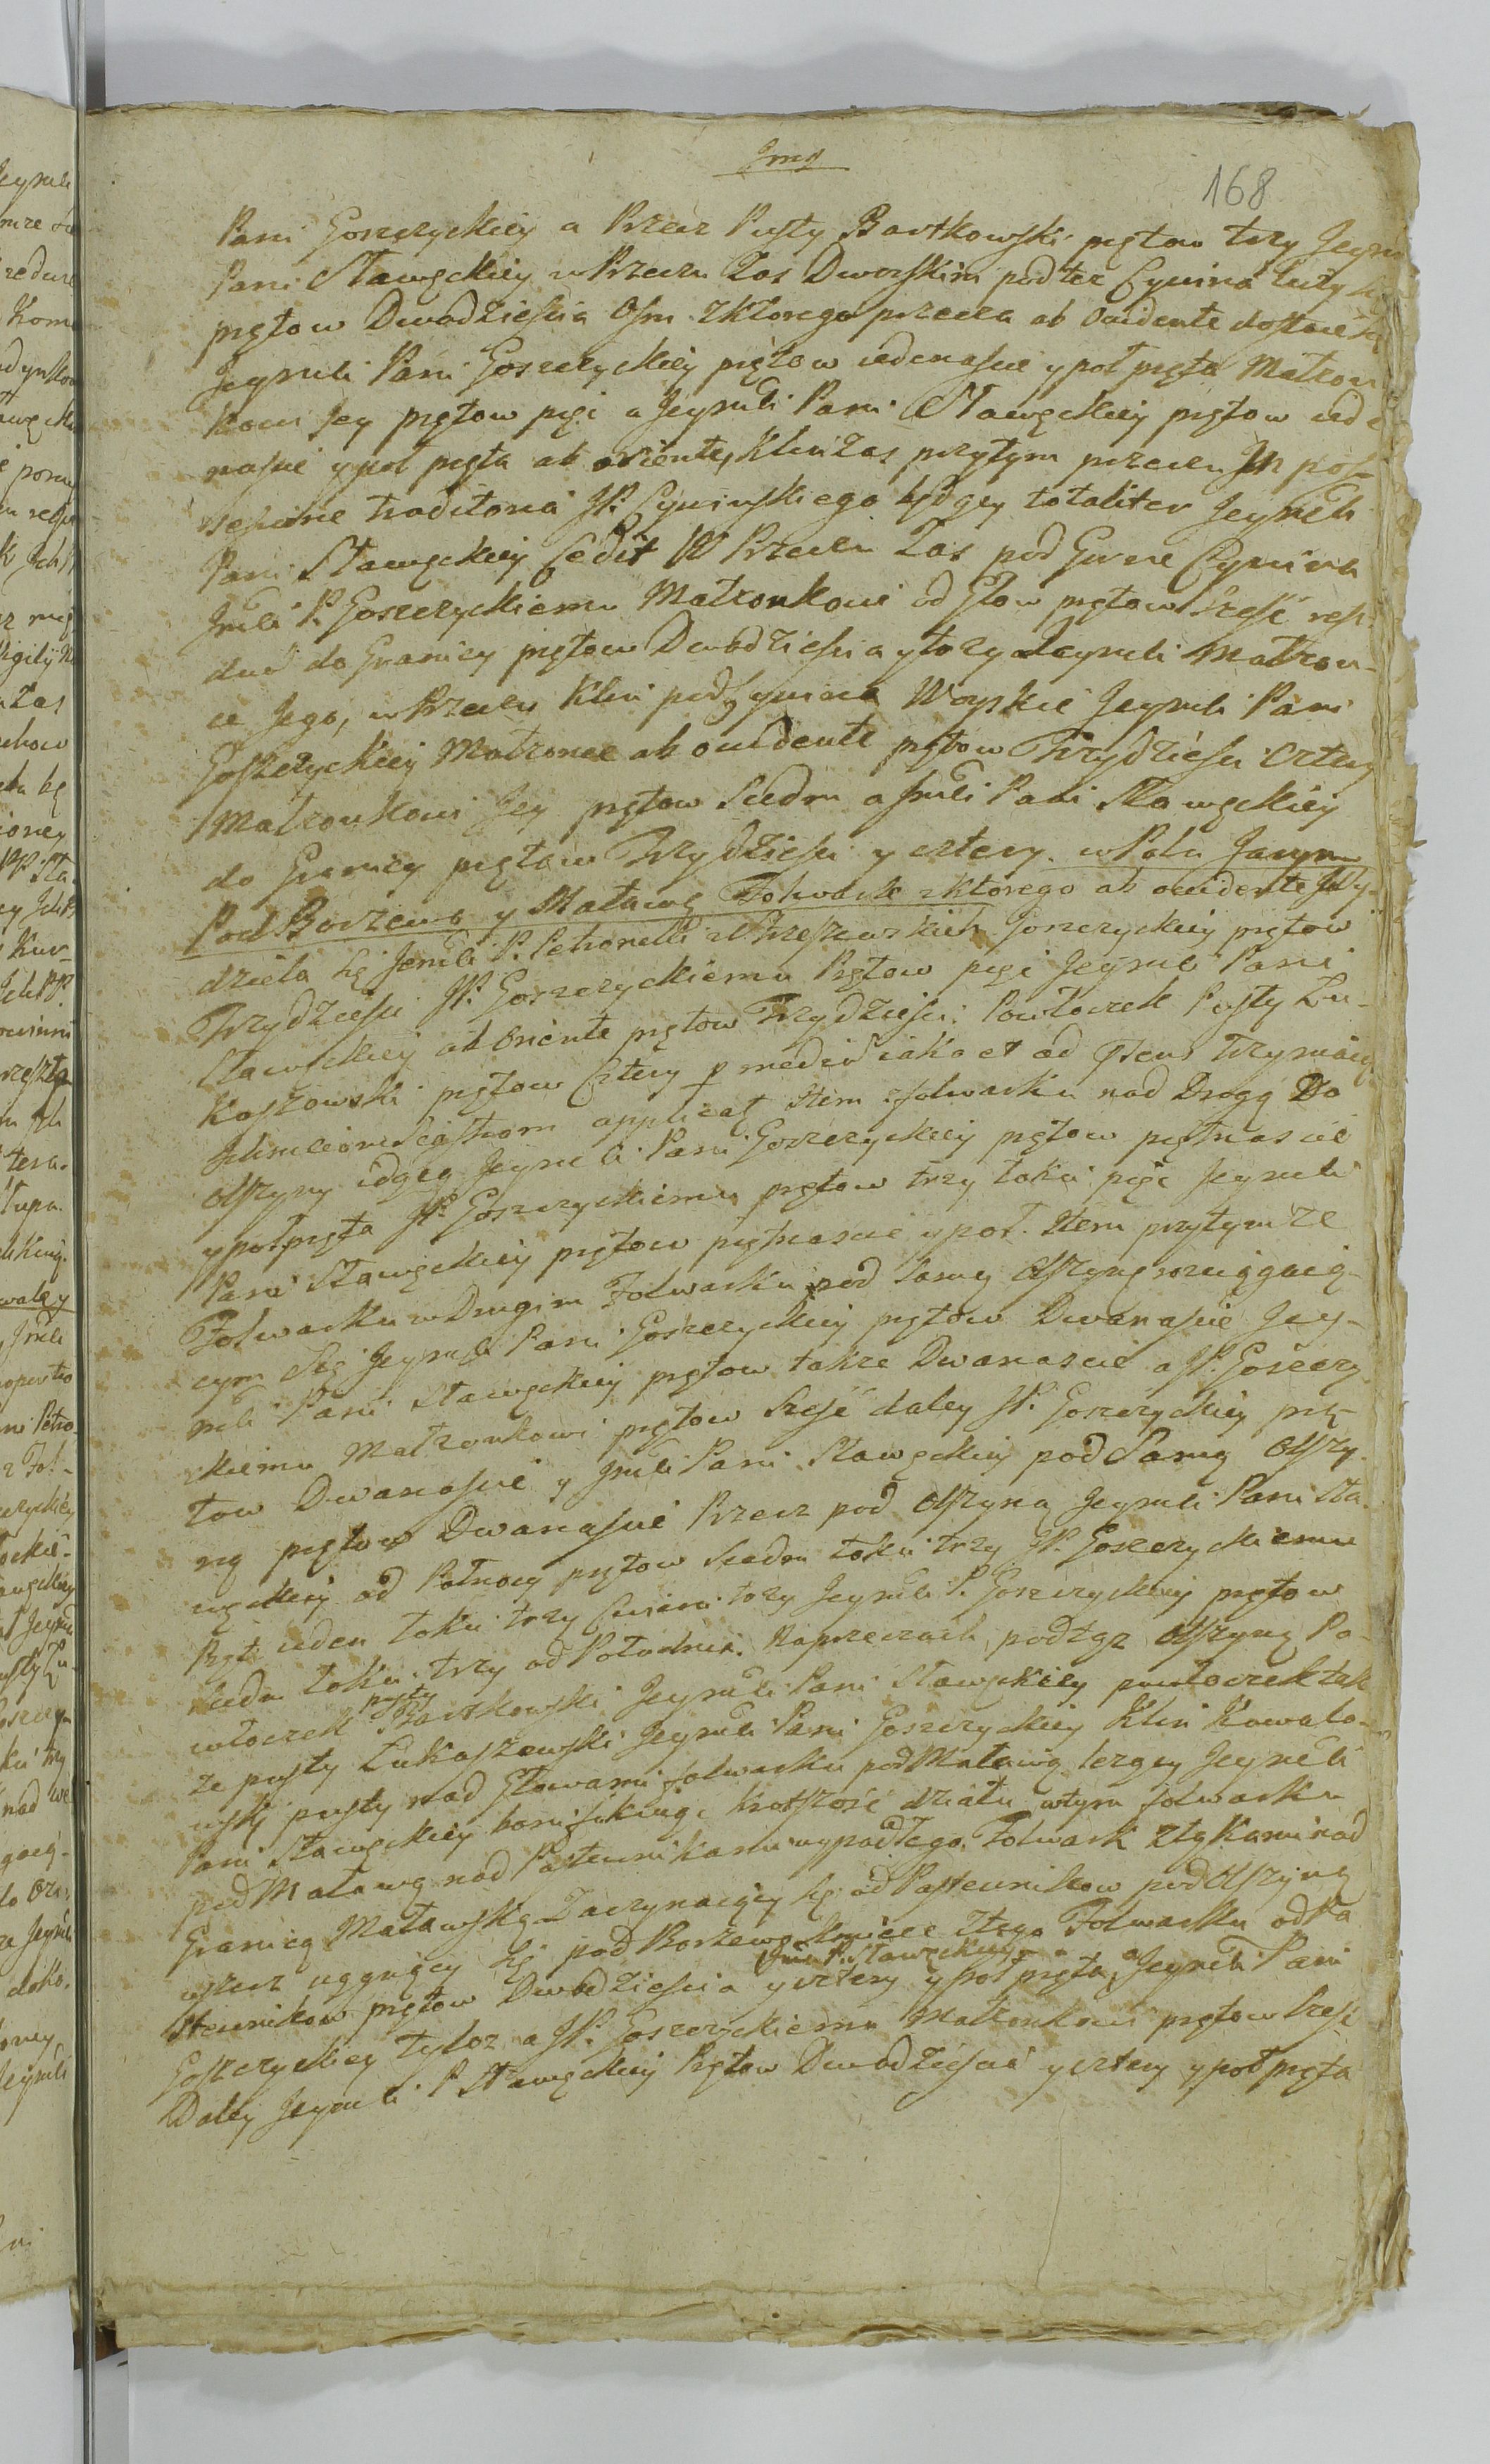 Jmę
168
Pani Goszczyckiey a Przecz Pusty Bartkowski prętow trzy Jeym
Pani Stawęckiey w Przeczu Zas Dworskim podtez Cywina Luty
prętow Dwadziescia Osm. Zktorego przecza ab Occidente dostaie się
Jeymci Pani Goszczyckiey prętow iedenascie y poł pręta Małzon
kowi Jey prętow pięć a Jeymci Pani Stawęckiey prętow iede
nascie y poł pręta ab oriente, Klin zas przytym przeczu In pos-
sessione traditoria JP. Cywinskiego będący totaliter Jeymci
Pani Stawęckiey Cedit W Przeczu Zas pod Gurne Cywina
Jmci P. Goszczyckiemu Małzonkowi od Głow prętow szesc resi-
duŭ do Granicy prętow Dwadziescia y trzy Jeymci Małzon-
ce Jego, w Przeczu Klin pod Cywina Woyskie Jeymci Pani
Goszczyckiey Małzonce ab occidente prętow Trzydziesci Cztery
Małzonkowi Jey prętow Siedm a Jmci Pani Stawęckiey
do Granicy prętow Trzydziesci y cztery. w Polu Jarym
Pod Borzewo y Maławę Folwark zktorego ab occidente Wy-
dziela się Jemci P. Petronelli z Strzeszewskich Goszczyckiey prętow
Trzydziesci JP. Goszczyckiemu Prętow pięć Jeymci Pani
Stawęckiey ab Oriente prętow Trzydziesci. Powłoczek Pusty Łu-
kaszowski prętow Cztery p mediŭ iako et ad Trzymaiący
Ichmciom Siostrom applicat Item Folwarku nad Drogą Do
Olszyny idącą Jeymci Pani Goszczyckiey prętow piętnascie
y poł pręta JP. Goszczyckiemu prętow trzy łokci pięć Jeymci
Pani Stawęckiey prętow piętnascie y poł. Item przytymze
Folwarku w Drugim Folwarku pod Samą Olszynę rozciągaią-
cym Się Jeymci Pani Goszczyckiey prętow Dwanascie Jey-
mci Pani Stawęckiey prętow takze Dwanascie a JP. Goszczy
ckiemu Małzonkowi prętow Szesć daley JP. Goszczyckiey prę-
tow Dwanascie y Jmci Pani Stawęckiey pod Samą Olszy-
ną prętow Dwanascie Przecz pod Olszyną Jeymci Pani Sta-
węckiey od Połnocy prętow Siedm łokci trzy JP. Goszczyckiemu
Pręt ieden łokci trzy Cwierci trzy Jeymci P. Goszczyckiey prętow
Siedm łokci trzy od Południa. Naprzeczach podtęz Olszyną Po-
włoczek pusty Bartkowski Jeymci Pani Stawęckiey powłoczek tak
ze pusty Łukaszewski Jeymci Pani Goszczyckiey Klin Kowalo-
wski pusty nad Głowami folwarku pod Maławę lezący Jeymci
Pani Stawęckiey bonifikuiąc krotszość działu wtym folwarku
pod Maławę nad Pastewnikami wypadłego. Folwark ztykami nad
Granicą Maławską Zaczynaiący się od Pastewnikow pod Olszynę
wzecz ciągnący się pod Borzewo koniec Ztego Folwarku od Pa
stewnikow prętow Dwadziescia y cztery y poł pręta Jmci P. Stawęckiey a Jeymci Pani
Goszczyckiey tyloz a JP. Goszczyckiemu Małzonkowi prętow szesć
Daley Jeymci P. Stawęckiey Prętow Dwadziescia y cztery y poł pręta